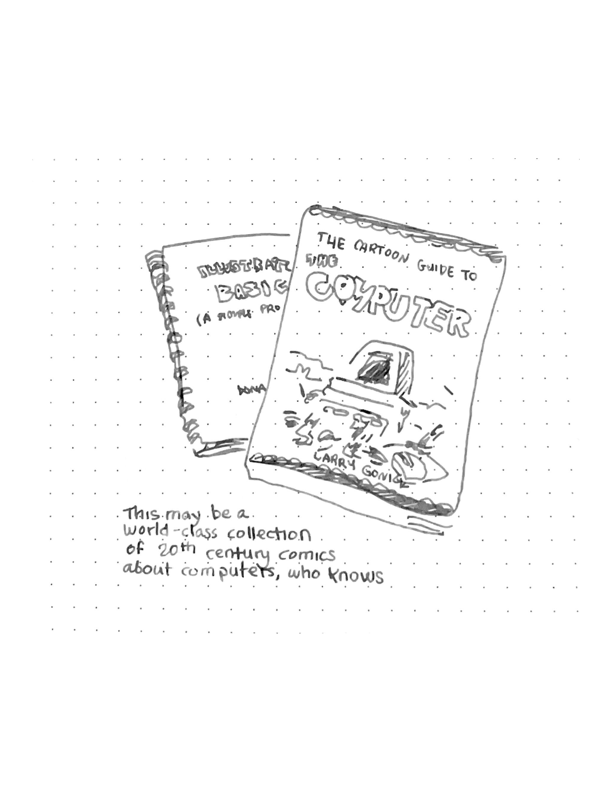 ILLUSTRAT
BASIC
(A SIMPLE PRO
DONA
THE CARTOON GUIDE TO
THE
COMPUTER
LARRY GONICK
This may be a
world-class collection
of 20th century comics
about computers, who knows